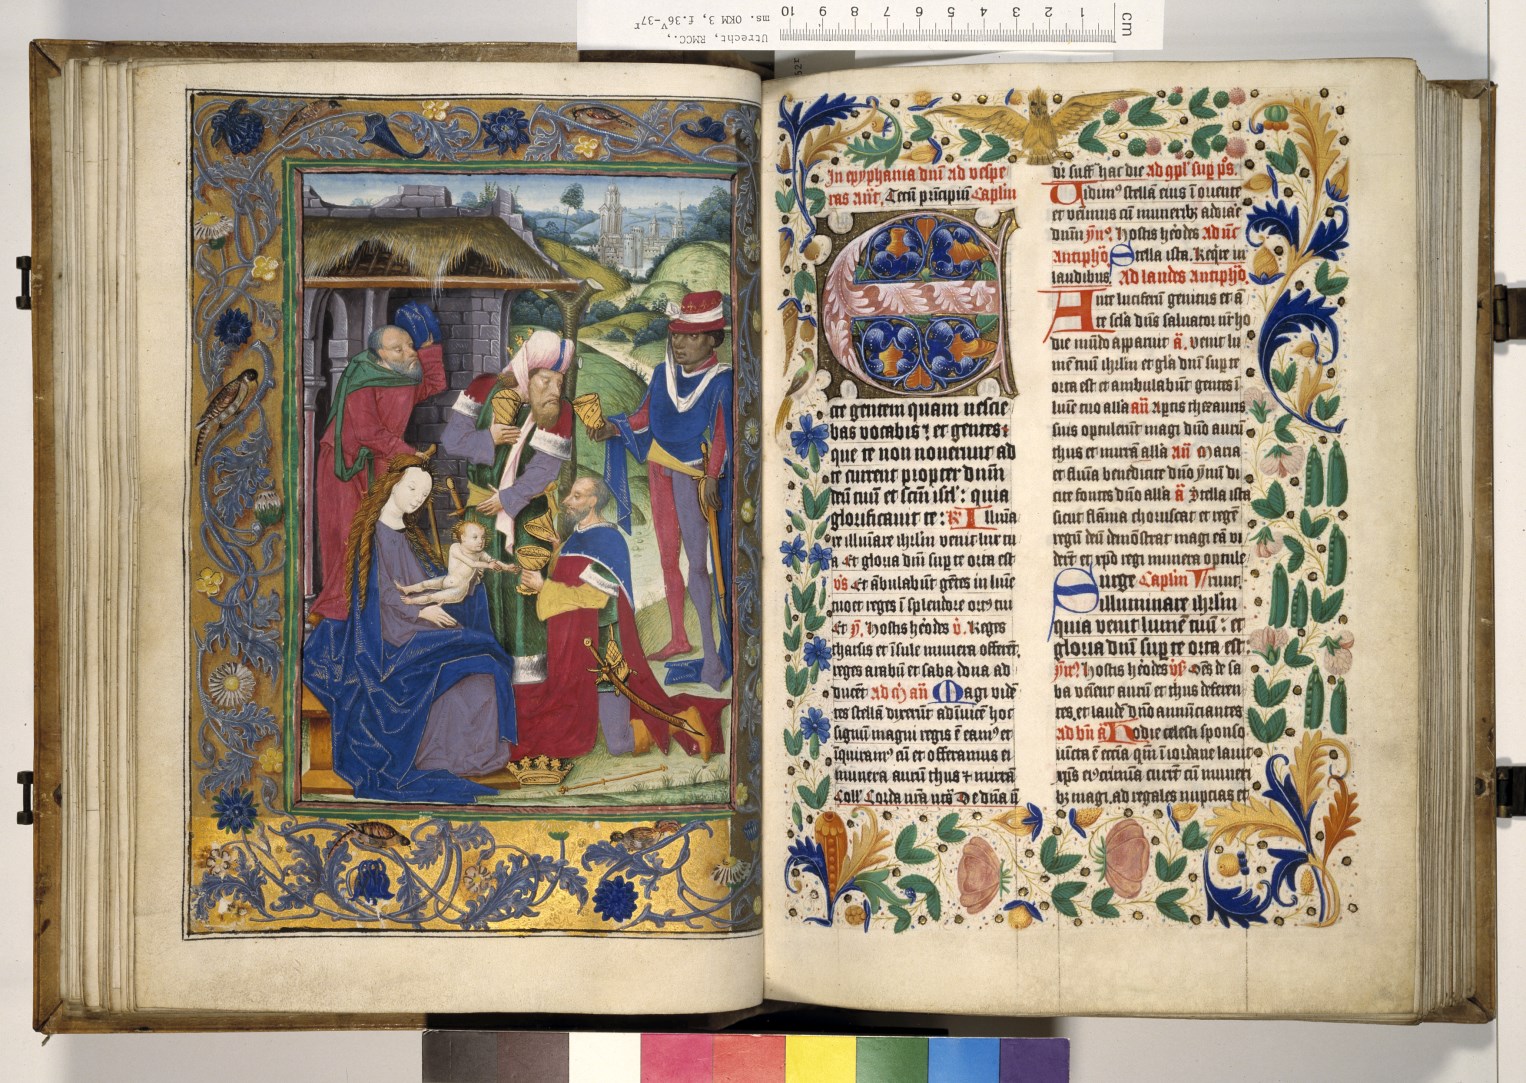 cm 1 2 3 4 5 6 7 8 9 10
Utrecht, RMCC.,
ms. OKM 3, f.36v-37r
In epyphania dnī ad vespe
ras añ. Tecū prīcipiū Caplm
E
cce gentem quam nescie
bas vocabis: et gentes
que te non noverunt ad
te current propter dnm
deū tuū et scm isrl: quia
glorificavit te: R Illumīa
re illumīare ihrlm venit lux tu
a Et gloria dnī sup te orta est
vs Et ābulabūt gētes in lumīe
tuo et reges ī splendore ortꝰ tui
Hostis hēodes v. Reges
tharsis et īsule munera offerēt
reges arabū et saba dona ad
ducēt Ad añ Magi vidē
tes stellā dixerūt ad īvicē hoc
signū magni regis ē eamꝰ et
īquiramꝰ eū et offeramus ei
munera aurū thus et mirrā
Coll
di suff hac die Ad
Vidimꝰ stellā eius ī oriente
et venimus cū muneribꝫ adorare
dnm Hostis hēodes
Antipho Stella ista. Reqre in
laudibus. Ad laudes Antipho
Ante luciferū genitus et ā
te scla dnūs salvator nr ho
die mūdo apparuit a. Venit lu
mē tuū ihrlm et gla dnī sup te
orta est et ambulabūt gentes ī
lumīe tuo alla añ Aptis thesauris
suis optulerūt magi dnō aurū
thus et mirrā alla añ Maria
et flumīa benedicite dnō ymnū di
cite fontes dnō alla a Stella ista
sicut flāma choruscat et regē
regū deū demōstrat magi eā vi
derūt et xpō regi munera optule
Surge Caplm runt.
illuminare ihrlm
quia venit lumē tuū: et
gloria dnī sup te orta est:
Hostis hēodes vs Oēs de sa
ba venient aurū et thus deferen
tes, et laudē dnō annūciantes
Hodie celesti sponso
iūcta ē ecclia qm ī iordane lavit
xps eꝰ crimina currūt cū muneri
bꝫ magi, ad regales nuptias et